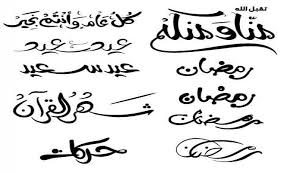 تقبل الله
منا ومنكم
رمضان
رمضان
رمضان
رمضان
كل عام وأنتم بخير
عيد سعيد
عيد سعيد
شهر القرآن
حركات